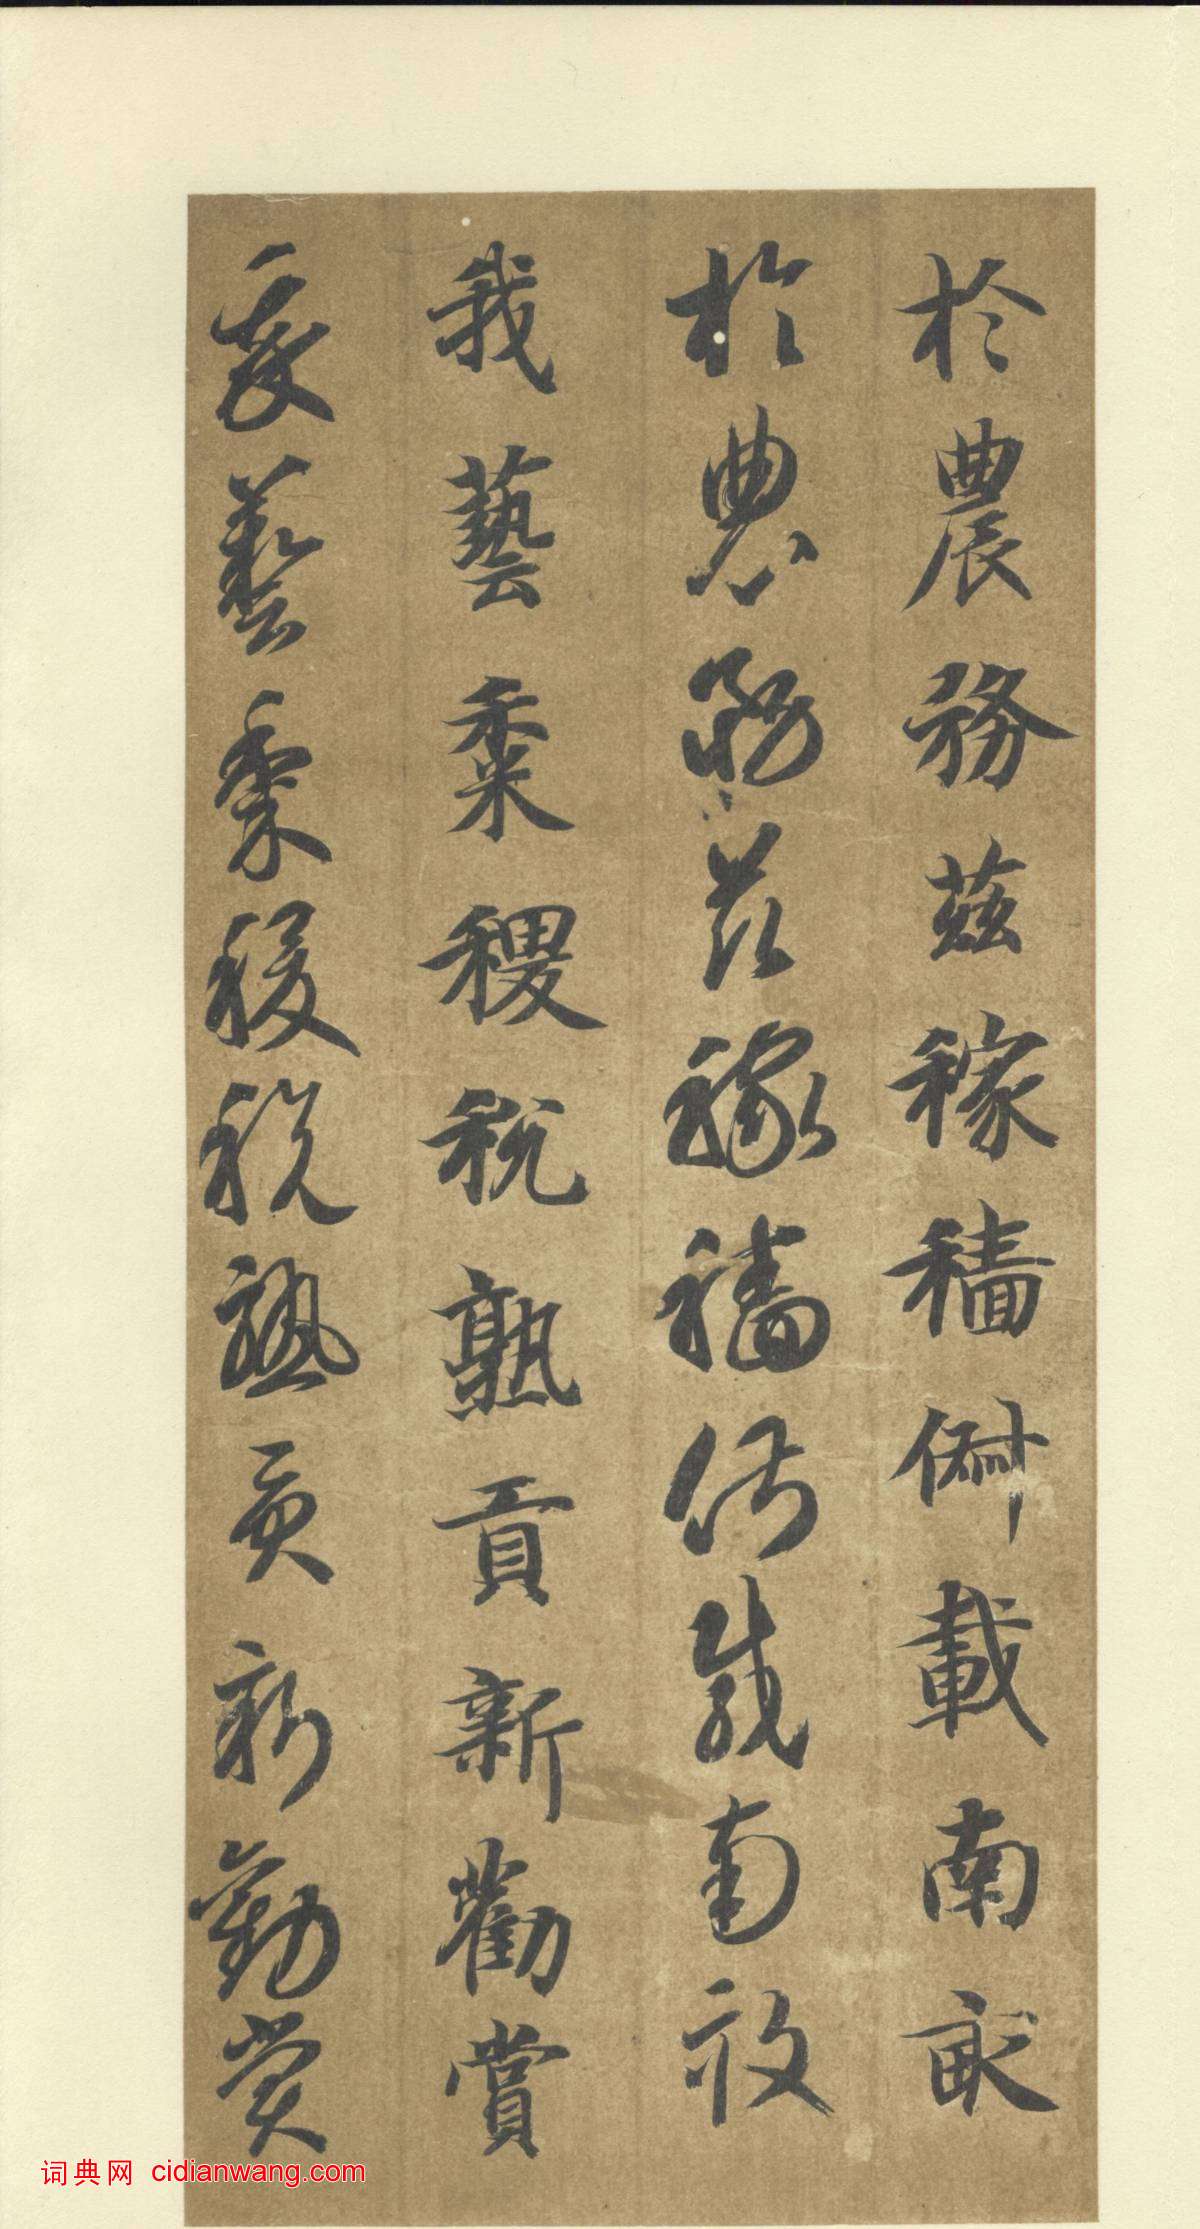 於農務茲稼穡俶載南畝
於農務茲稼穡俶載南畝
我藝黍稷稅熟貢新勸賞
我藝黍稷稅熟貢新勸賞
词典网 cidianwang.com